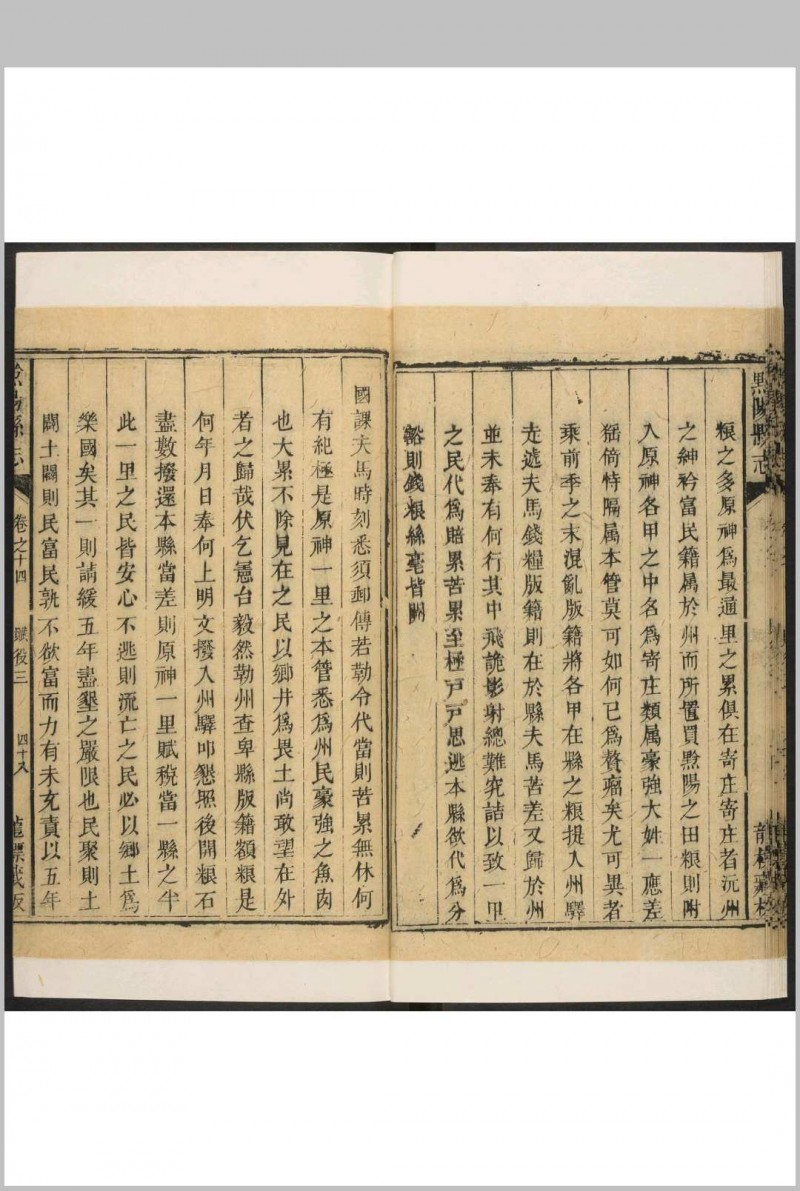 黔陽縣志
糧之多原神為最通里之累俱在寄庄寄庄者沅州
之紳衿富民籍属於州而所置買黔陽之田糧則附
入原神各甲之中名為寄庄類属豪強大姓一應差
徭倚特隔属本管莫可如何已為贅瘤矣尤可異者
乘前季之末混亂版籍將各甲在縣之糧提入州驛
走遞夫馬錢糧版籍則在於縣夫馬苦差又歸於州
並未奉有何行其中飛詭影射總難究詰以致一甲
之民代為賠累苦累至極戸戸思逃本縣欲代為分
豁則錢糧絲毫皆關
國課夫馬時刻悉須郵傳若勒令代當則苦累無休何
有紀極是原神一里之本管悉為州民豪強之魚肉
也大累不除見在之民以鄉井為畏土尚敢望在外
者之歸哉伏乞憲台毅然勒州查卑縣版籍額糧是
何年月日奉何上明文撥入州驛叩懇照後開糧石
盡數撥還本縣當差則原神一里賦稅當一縣之半
此一里之民皆安心不逃則流亡之民必以鄉土為
樂國矣其一則請緩五年盡墾之嚴限也民聚則土
闢土闢則民富民孰不欲富而力有未充責以五年
黔陽縣志
卷之十四
賦役三
四十八
龍標藏板